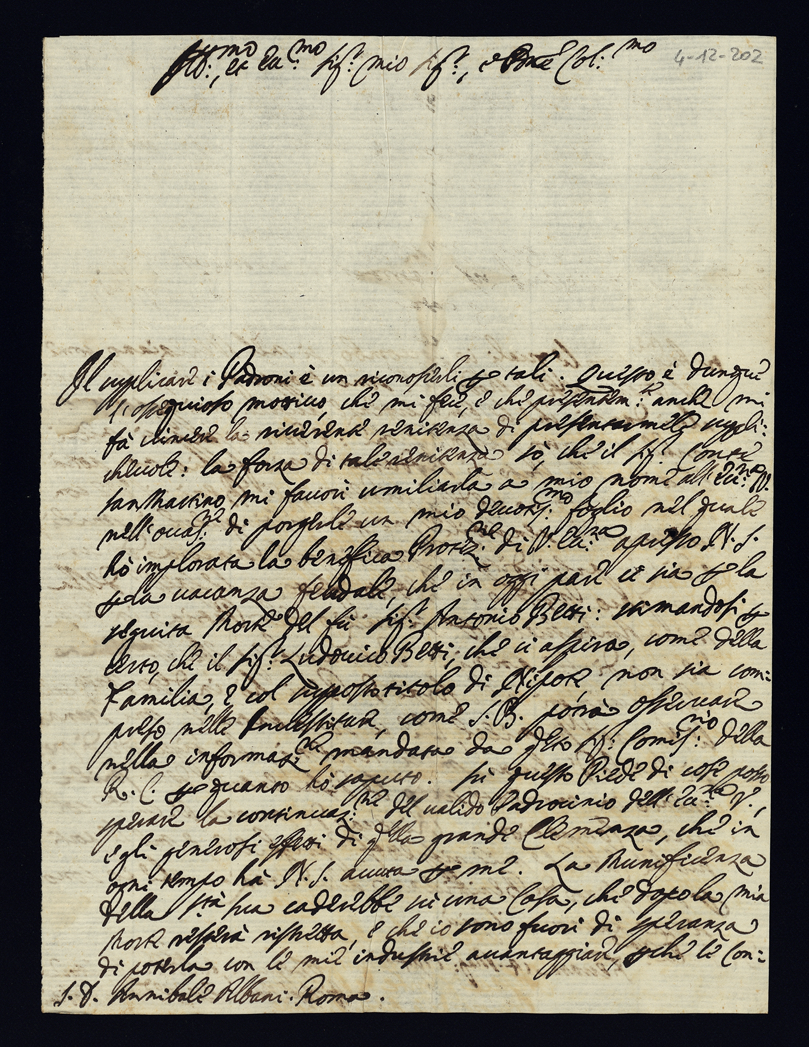 Ill:mo, et Ecc:mo Sig:r mio Sig:r, e Pne Col:mo
4-12-202
Il supplicare i Padroni è un riconoscerli p tali. Questo è dunque
l'ossequioso motivo, che mi fece, e che presentem:te anche mi
fà vincere la riverente renitenza di presentarmele suppli:
chevole: la forza di tale renitenza fò, che il Sig:r Conte
San Martino mi favorì umiliarla a mio nome all'Ecc:za V.
nell'occas:e di porgerle un mio devotis:mo foglio nel quale
hò implorata la benefica Protez:ne di V. Ecc:za apresso N. S.
p la vacanza feudale, che in oggi pare ci sia p la
seguita Morte del fù Sig:r Antonio Betti: stimandosi p
certo, che il Sig:r Ludovico Betti, che ci aspira, come della
Famiglia, e col supposto titolo di Nipote non sia com:
preso nelle Investiture, come S. B. potrà osservare
nella informaz:ne mandata da qto Sig: Comis:rio della
R. C. p quanto hò saputo. Su questo Piede di cose posso
sperare la continuaz:ne del valido Padrocinio dell'Ecc:za V.,
e gli generosi effetti di qlla grande Clemenza, che in
ogni tempo hà N. S. avuta p me. La Munificenza
della S:tà Sua caderebbe in una Casa, che dopo la mia
Morte resterà ristretta, e che io sono fuori di speranza
di poterla con le mie industrie avantaggiare, pche le Con:
S. D. Annibale Albani. Roma.